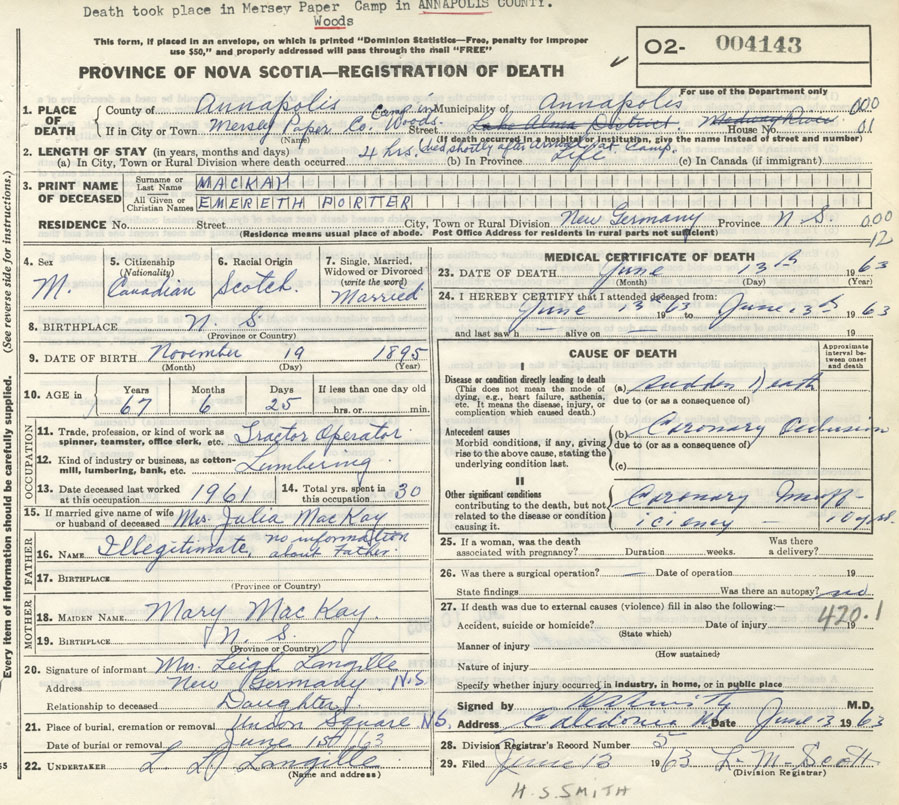 Death took place in Mersey Paper Camp in ANNAPOLIS COUNTY.
Woods
This form, if placed in an envelope, on which is printed "Dominion Statistics—Free, penalty for improper
use $50," and properly addressed will pass through the mail "FREE"
O2- 004143
PROVINCE OF NOVA SCOTIA—REGISTRATION OF DEATH
For use of the Department only
1. PLACE OF DEATH
County of Annapolis Municipality of Annapolis 000
If in City or Town Mersey Paper Co. Woods Camp in Street Lake Alma District. Medway River House No. 01
(Name) (If death occurred in a hospital or institution, give the name instead of street and number)
2. LENGTH OF STAY (in years, months and days)
(a) In City, Town or Rural Division where death occurred 4 hrs. (died shortly after arrival at Camp. (b) In Province Life (c) In Canada (if immigrant)
3. PRINT NAME OF DECEASED
Surname or Last Name MACKAY
All Given or Christian Names EMERETH PORTER
RESIDENCE No. Street City, Town or Rural Division New Germany Province N S. 000
(Residence means usual place of abode. Post Office Address for residents in rural parts not sufficient) 12
4. Sex M.
5. Citizenship (Nationality) Canadian
6. Racial Origin Scotch
7. Single, Married, Widowed or Divorced (write the word) Married
8. BIRTHPLACE N. S
(Province or Country)
9. DATE OF BIRTH November 19 1895
(Month) (Day) (Year)
10. AGE in Years 67 Months 6 Days 25 If less than one day old hrs. or min.
OCCUPATION
11. Trade, profession, or kind of work as spinner, teamster, office clerk, etc. Tractor Operator
12. Kind of industry or business, as cotton-mill, lumbering, bank, etc. Lumbering
13. Date deceased last worked at this occupation 1961
14. Total yrs. spent in this occupation 30
15. If married give name of wife or husband of deceased Mrs. Julia MacKay
FATHER
16. NAME Illegitimate, no information about Father.
17. BIRTHPLACE
(Province or Country)
MOTHER
18. MAIDEN NAME Mary MacKay
19. BIRTHPLACE N. S.
(Province or Country)
20. Signature of informant Mrs. Leigh Langille
Address New Germany N.S.
Relationship to deceased Daughter
21. Place of burial, cremation or removal Union Square NS.
Date of burial or removal June 15th/63
22. UNDERTAKER L. L. Langille
(Name and address)
MEDICAL CERTIFICATE OF DEATH
23. DATE OF DEATH June 13th 1963
(Month) (Day) (Year)
24. I HEREBY CERTIFY that I attended deceased from:
June 13 1963 to June 13th 1963
and last saw h — alive on 19
CAUSE OF DEATH
Approximate interval between onset and death
I
Disease or condition directly leading to death
(This does not mean the mode of dying, e.g., heart failure, asthenia, etc. It means the disease, injury, or complication which caused death.)
(a) Sudden Death
due to (or as a consequence of)
Antecedent causes
Morbid conditions, if any, giving rise to the above cause, stating the underlying condition last.
(b) Coronary Occlusion
due to (or as a consequence of)
(c)
II
Other significant conditions contributing to the death, but not related to the disease or condition causing it.
Coronary Insuff-
iciency — 10 yrs.
25. If a woman, was the death associated with pregnancy? Duration weeks. Was there a delivery?
26. Was there a surgical operation? — Date of operation 19
State findings Was there an autopsy? no
27. If death was due to external causes (violence) fill in also the following:—
420.1
Accident, suicide or homicide? Date of injury 19
(State which)
Manner of injury
(How sustained)
Nature of injury
Specify whether injury occurred in industry, in home, or in public place
Signed by M.D.
Address Caledonia Date June 13 1963
28. Division Registrar's Record Number 5
29. Filed June 13 1963 L. M. Scott
(Division Registrar)
H.S.SMITH
(See reverse side for instructions.)
Every item of information should be carefully supplied.
55